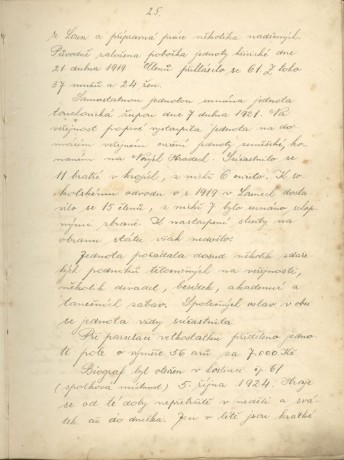 25.
z Loun a přípravná práce několika nadšených.
Původně založena pobočka jednoty
dne
21 dubna 1919. Členů přihlásilo se 61. Z toho
37 mužů a 24 žen.
Samostatnou jednotou uznána jednota
župou dne 7 dubna 1921. Na
veřejnost poprvé vystoupila jednota na do
mácím veřejném cvičení jednoty
ko
naném na Hradech. Súčastnilo se
11 bratří v kroji, z nichž 6 cvičilo. K so
kolskému odvodu v r 1919 v Lounech dosta
vilo se 15 členů, z nichž 7 bylo uznáno schop
nými zbraně. K nastoupení služby na
obranu státu však nedošlo.
Jednota pořádala dosud několik zdaři
lých podniků tělocvičných na veřejnosti,
několik divadel, besídek, akademií a
tanečních zábav. Společných oslav v ob
ci jednota vždy súčastnila
Při parcelaci velkostatku přiděleno jedno
tě pole o výměře 56 arů za 7.000 Kč
Biograf byl otevřen v hostinci čp 61
(spolková místnost) 5. října 1924. Hraje
se od té doby nepřetržitě v neděli a svá
tek až do dneška. Jen v létě jsou krátké